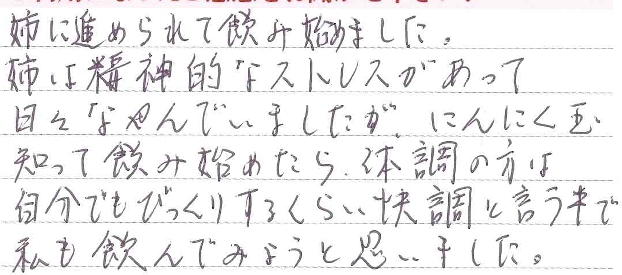 姉に進められて飲み始めました。
姉は精神的なストレスがあって
日々なやんでいましたが、にんにく玉
知って飲み始めたら、体調の方は
自分でもびっくりするくらい快調と言う事で
私も飲んでみようと思いました。